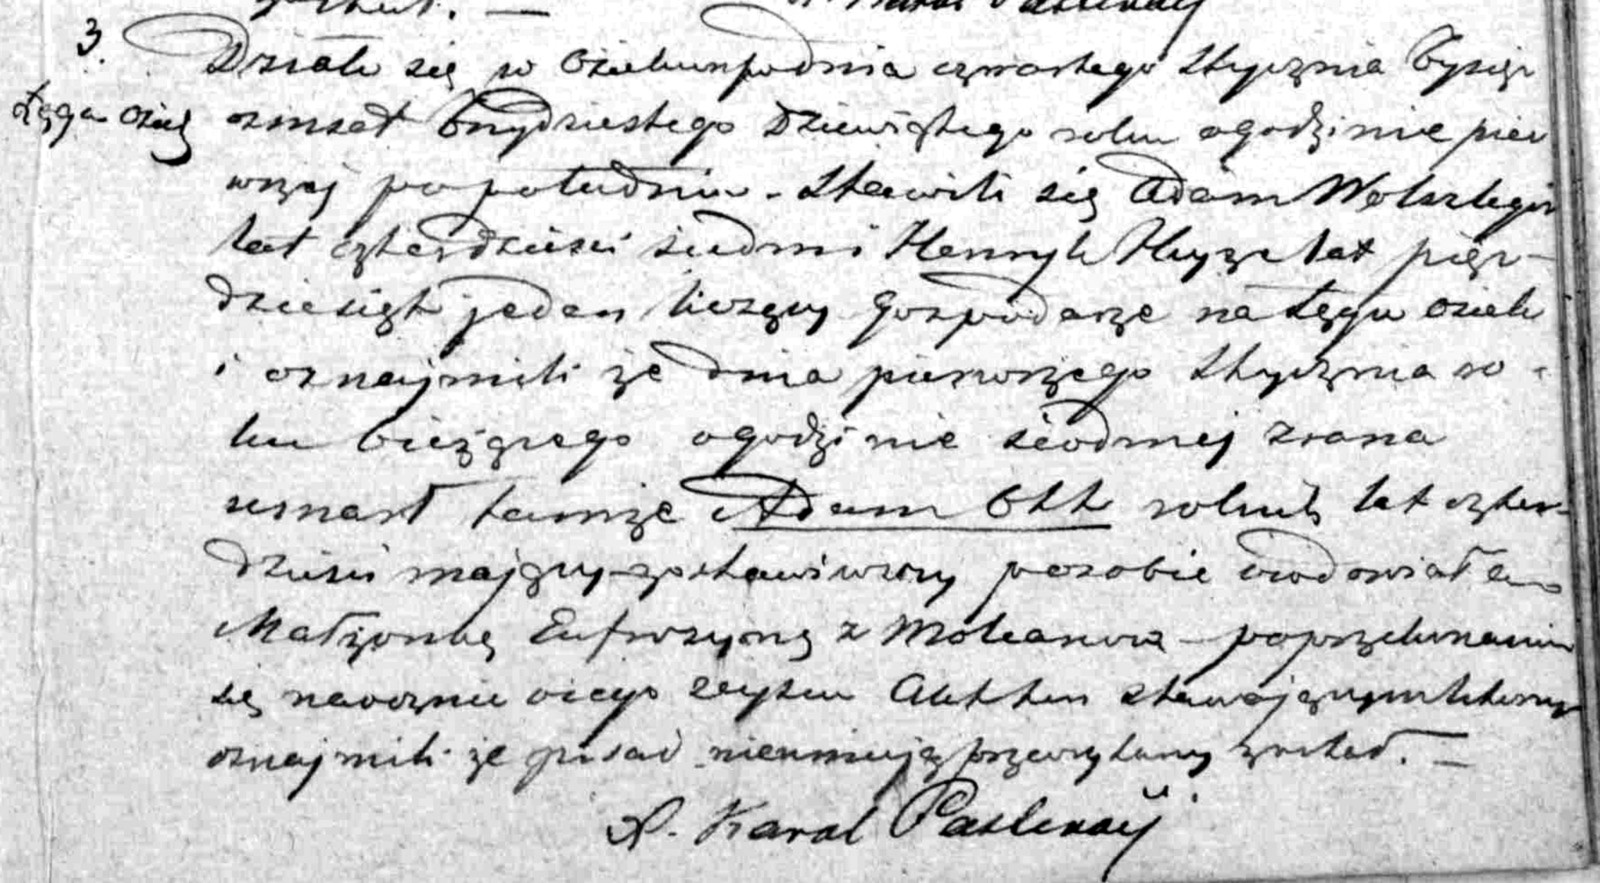 3.
Łęgu Osiek
Działo się w Osieku podnia czwartego Stycznia Tysiąc
osmset Trzydziestego Dziewiątego roku ogodzinie pier
wszej popołudniu - Stawili się Adam
lat czterdzieści siedm i Henryk Hyze lat pięć-
dziesiąt jeden liczący Gospodarze na Łęgu Osiek
i oznajmili że dnia pierwszego Stycznia ro-
ku bieżącego ogodzinie siodmej zrana
umarł tamże Adam Ott rolnik lat czter-
dzieści mający - zostawiwszy posobie owdowiałą
Małżonkę Eufrozynę z - poprzekonaniu
się naocznie oiego zeyściu Akt ten stawającym którzy
oznajmili że pisać nieumieją przeczytany został. -
X. Karol